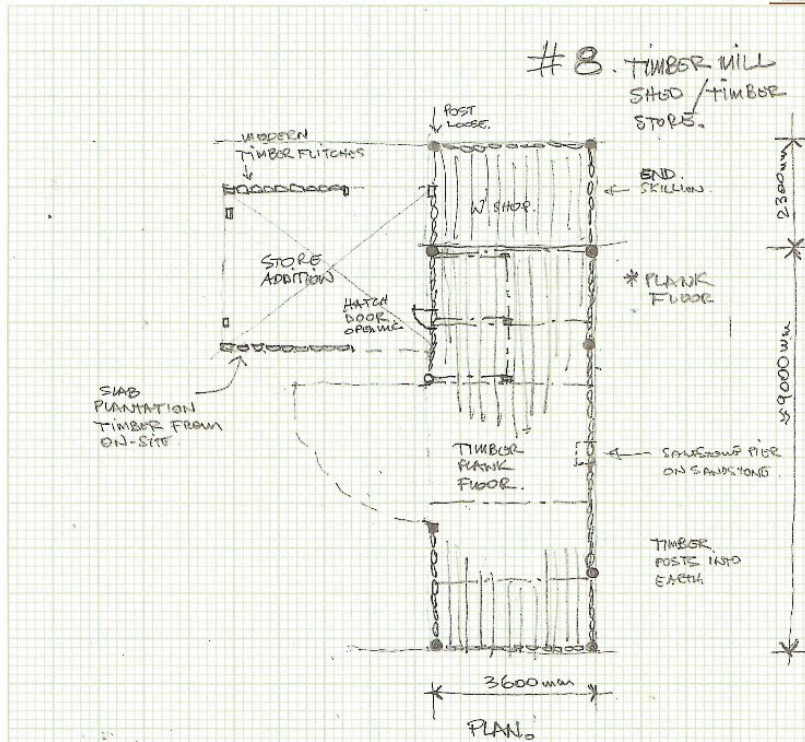 #8. TIMBER MILL
SHED / TIMBER
STORE.
POST
LOOSE.
MODERN
TIMBER FLITCHES
END
SKILLION.
2300mm
W'SHOP.
STORE
ADDITION
HATCH
DOOR
OPENING.
* PLANK
FLOOR
≈9000mm
SLAB
PLANTATION
TIMBER FROM
ON-SITE.
TIMBER
PLANK
FLOOR.
SANDSTONE PIER
ON SANDSTONE.
TIMBER
POSTS INTO
EARTH
3600mm
PLAN.